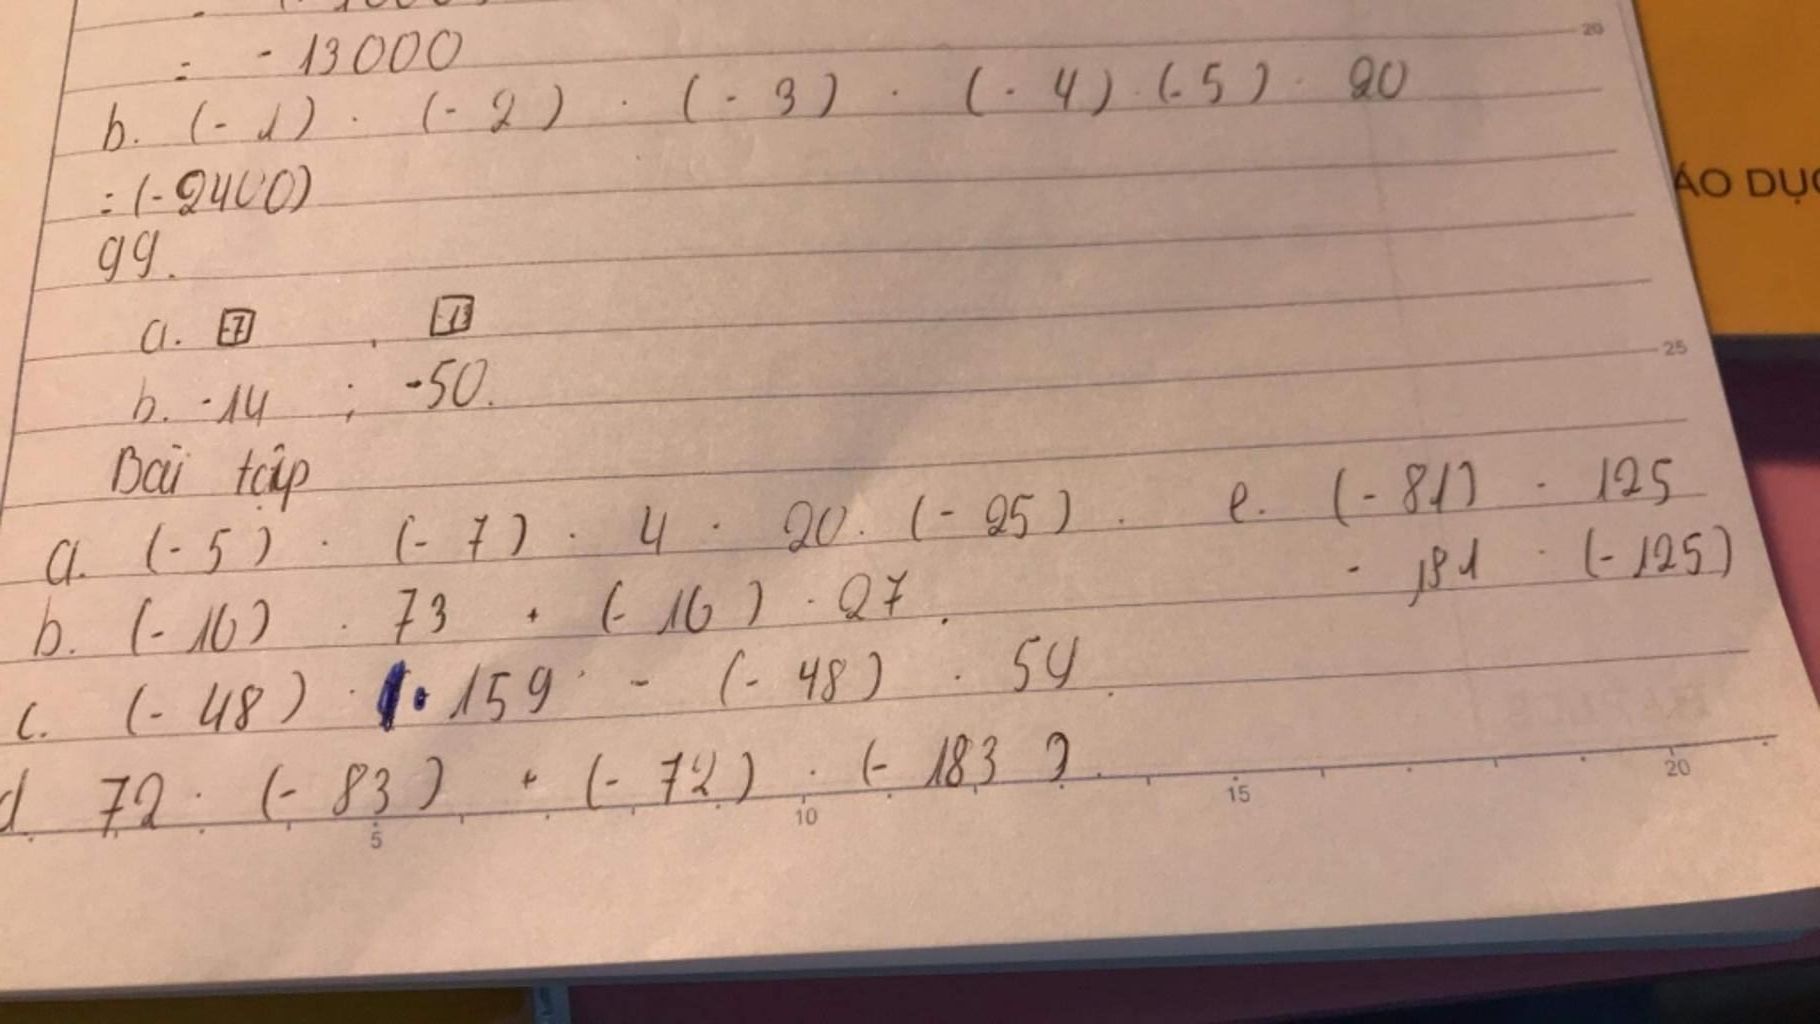 = - 13000
b. (-1) . (-2) . (-3) . (-4) . (-5) . 20
= (-2400)
99.
a. -7 , -13
b. -14 ; -50.
Bài tập
a. (-5) . (-7) . 4 . 20 . (-25) .
b. (-16) . 73 + (-16) . 27 .
c. (-48) . 159 - (-48) . 54 .
d. 72 . (-83) + (-72) . (-183) .
e. (-81) . 125
- 181 . (-125)
ÁO DỤC
20
25
5
10
15
20